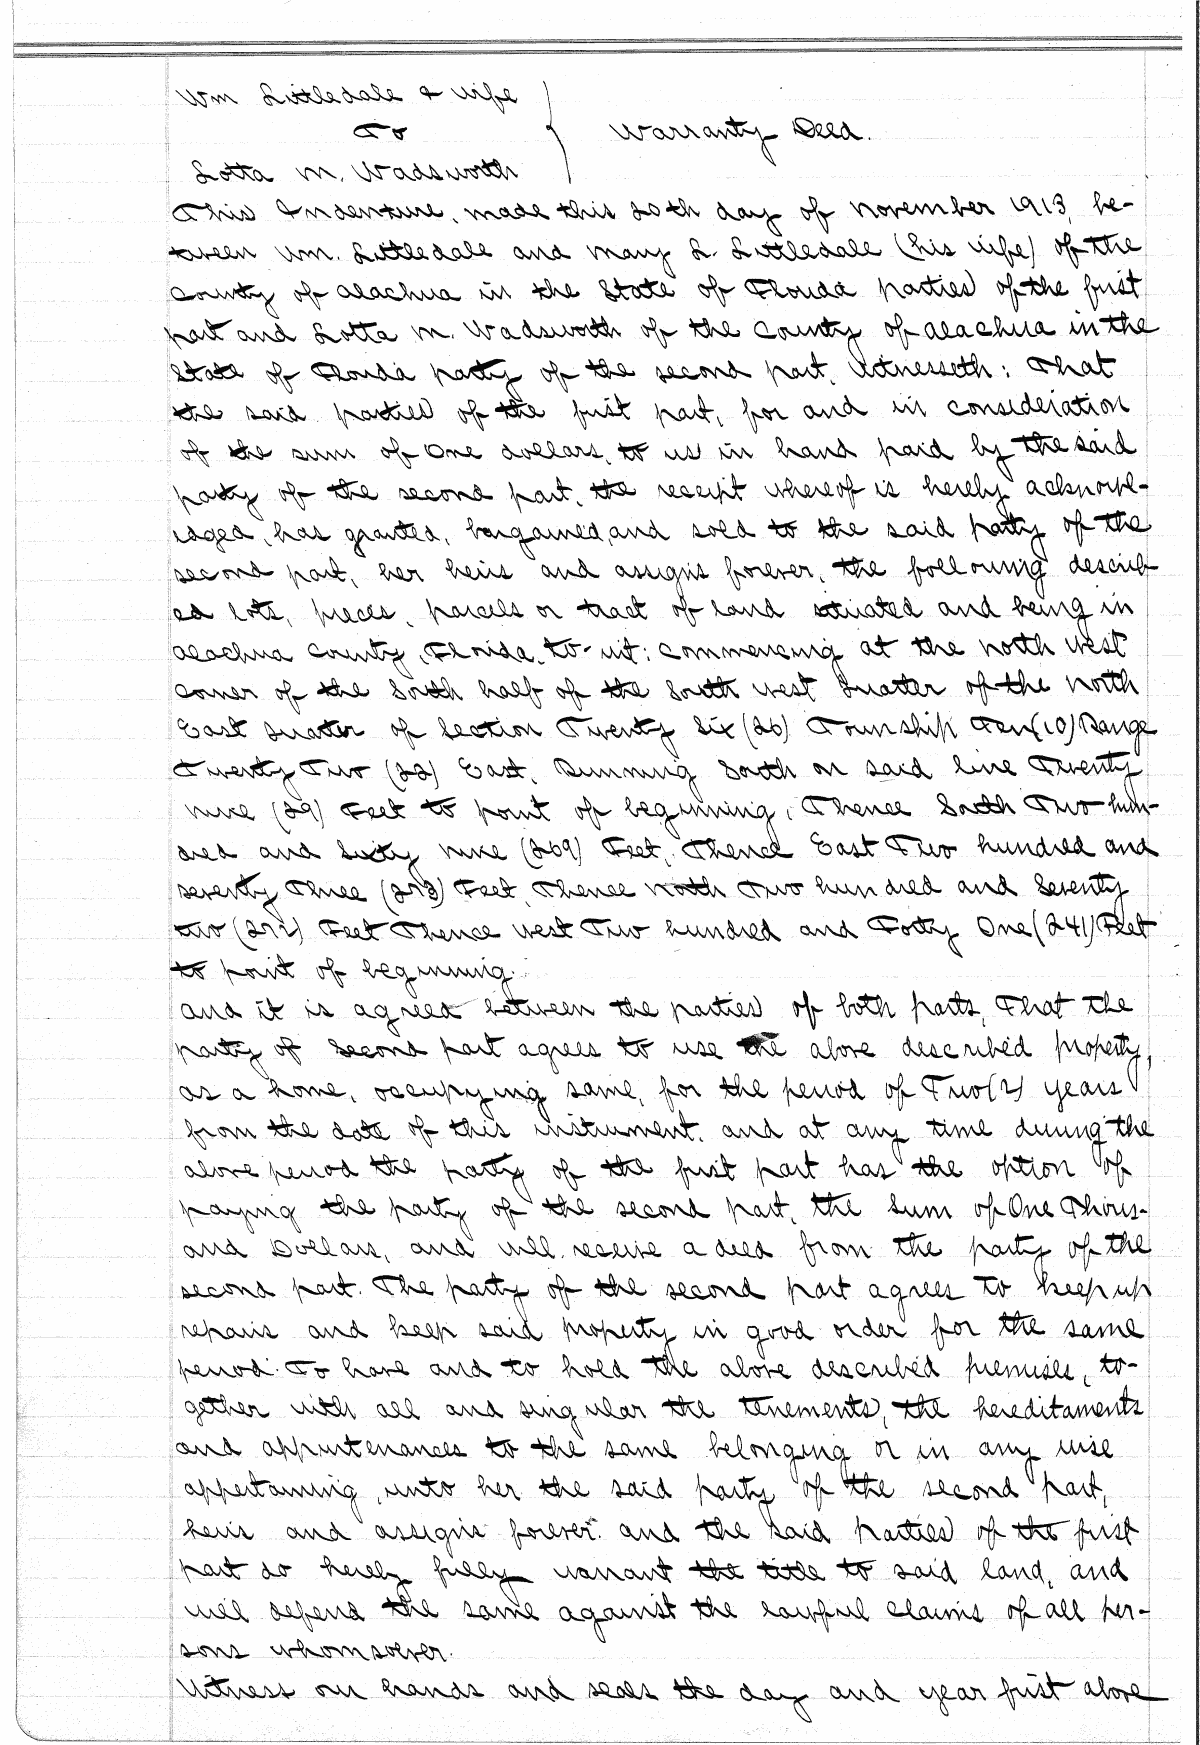 Wm Littledale & wife
To
Warranty Deed.
Lotta M. Wadsworth
This Indenture, made this 20th day of November 1913, be-
tween Wm. Littledale and Mary L. Littledale (his wife) of the
County of Alachua in the State of Florida parties of the first
part and Lotta M. Wadsworth of the County of Alachua in the
State of Florida party of the second part, Witnesseth: That
the said parties of the first part, for and in consideration
of the sum of One dollars, to us in hand paid by the said
party of the second part, the receipt whereof is hereby acknowl-
edged, has granted, bargained and sold to the said party of the
second part, her heirs and assigns forever, the following describ-
ed lots, pieces, parcels or tract of land situated and being in
Alachua County, Florida, to-wit: Commencing at the North West
Corner of the South half of the South West Quarter of the North
East Quarter of Section Twenty Six (26) Township Ten (10) Range
Twenty Two (22) East, Running South on said line Twenty
nine (29) Feet to point of beginning, Thence South Two hun-
dred and Sixty nine (269) Feet, Thence East Two hundred and
seventy Three (273) Feet, Thence North Two hundred and Seventy
two (272) Feet Thence West Two hundred and Forty One (241) Feet
to point of beginning.
And it is agreed between the parties of both parts, That the
party of Second part agrees to use the above described property,
as a home, occupying same, for the period of Two (2) years
from the date of this instrument, and at any time during the
above period the party of the first part has the option of
paying the party of the second part, the Sum of One Thous-
and Dollars, and will receive a deed from the party of the
second part. The party of the second part agrees to keep up
repairs and keep said property in good order for the same
period. To have and to hold the above described premises, to-
gether with all and singular the tenements, the hereditaments
and appurtenances to the same belonging or in any wise
appertaining, unto her the said party of the second part,
heirs and assigns forever. And the said parties of the first
part do hereby fully warrant the title to said land, and
will defend the same against the lawful claims of all per-
sons whomsoever.
Witness our hands and seals the day and year first above